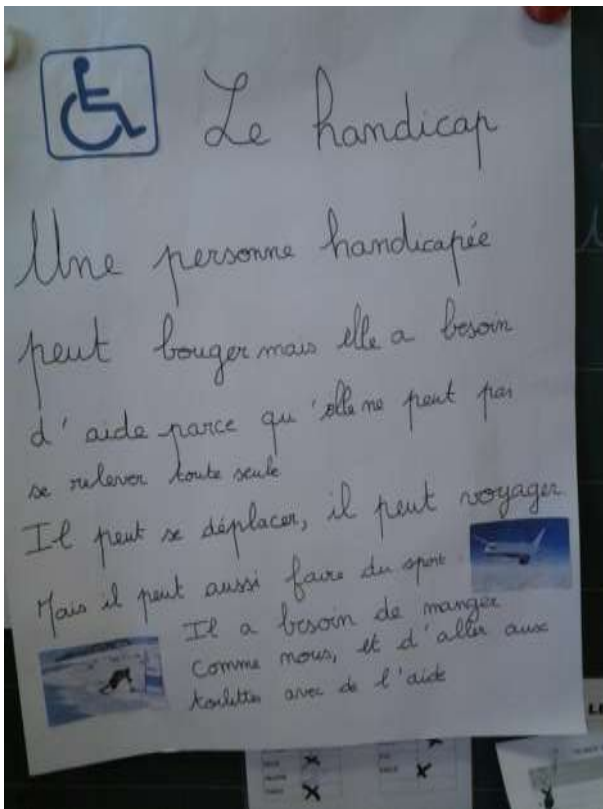 Le handicap
Une personne handicapée
peut bouger mais elle a besoin
d'aide parce qu'elle ne peut pas
se relever toute seule
Il peut se déplacer, il peut voyager
Mais il peut aussi faire du sport
Il a besoin de manger
comme nous, et d'aller aux
toilettes avec de l'aide